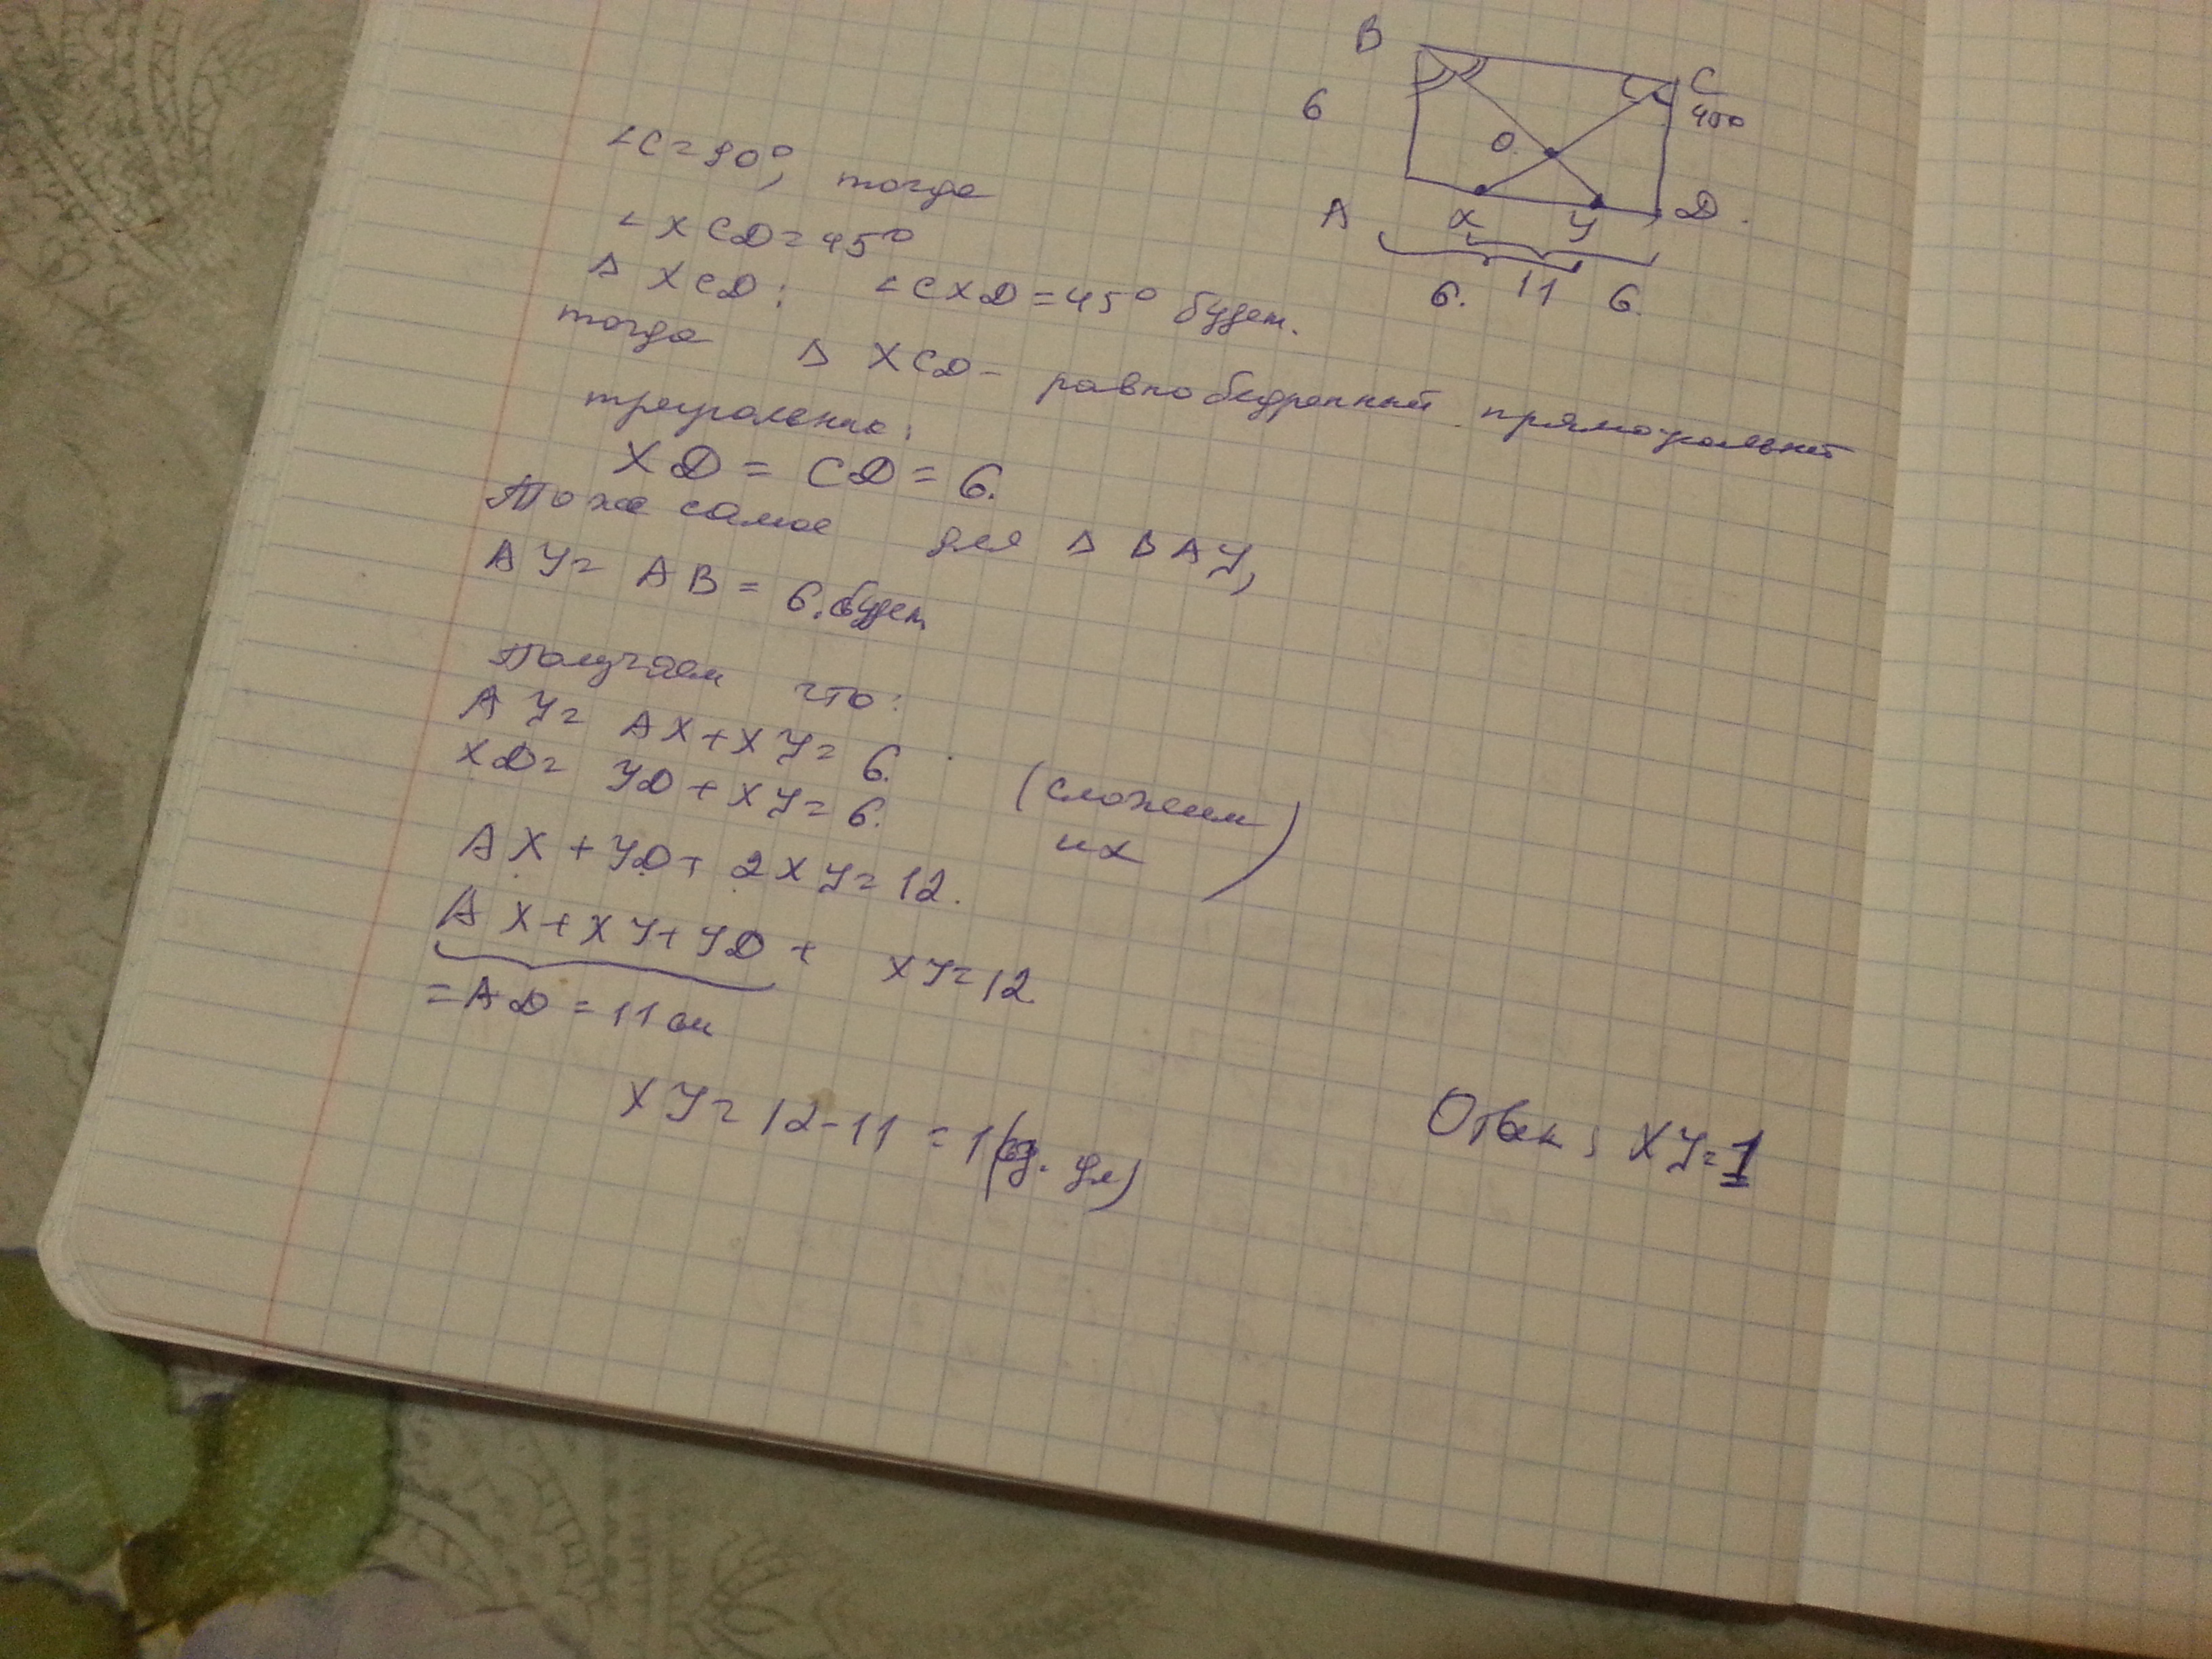 B
C
6
450
O
A
X
У
D.
6.
11
6.
∠C=90°, тогда
∠XCD=45°
Δ XCD: ∠CXD=45° будет.
тогда Δ XCD - равнобедренный прямоугольный
треугольник:
XD = CD = 6.
Тоже самое для Δ BAУ,
AУ= AB = 6. будет
Получаем что:
AУ= AX+XУ= 6.
XD= УD+XУ= 6.
(сложим
их)
AX+УD+2XУ=12.
AX+XУ+УD + XУ=12.
=AD=11 см
XУ=12-11 =1(ед. дл)
Ответ: XУ=1